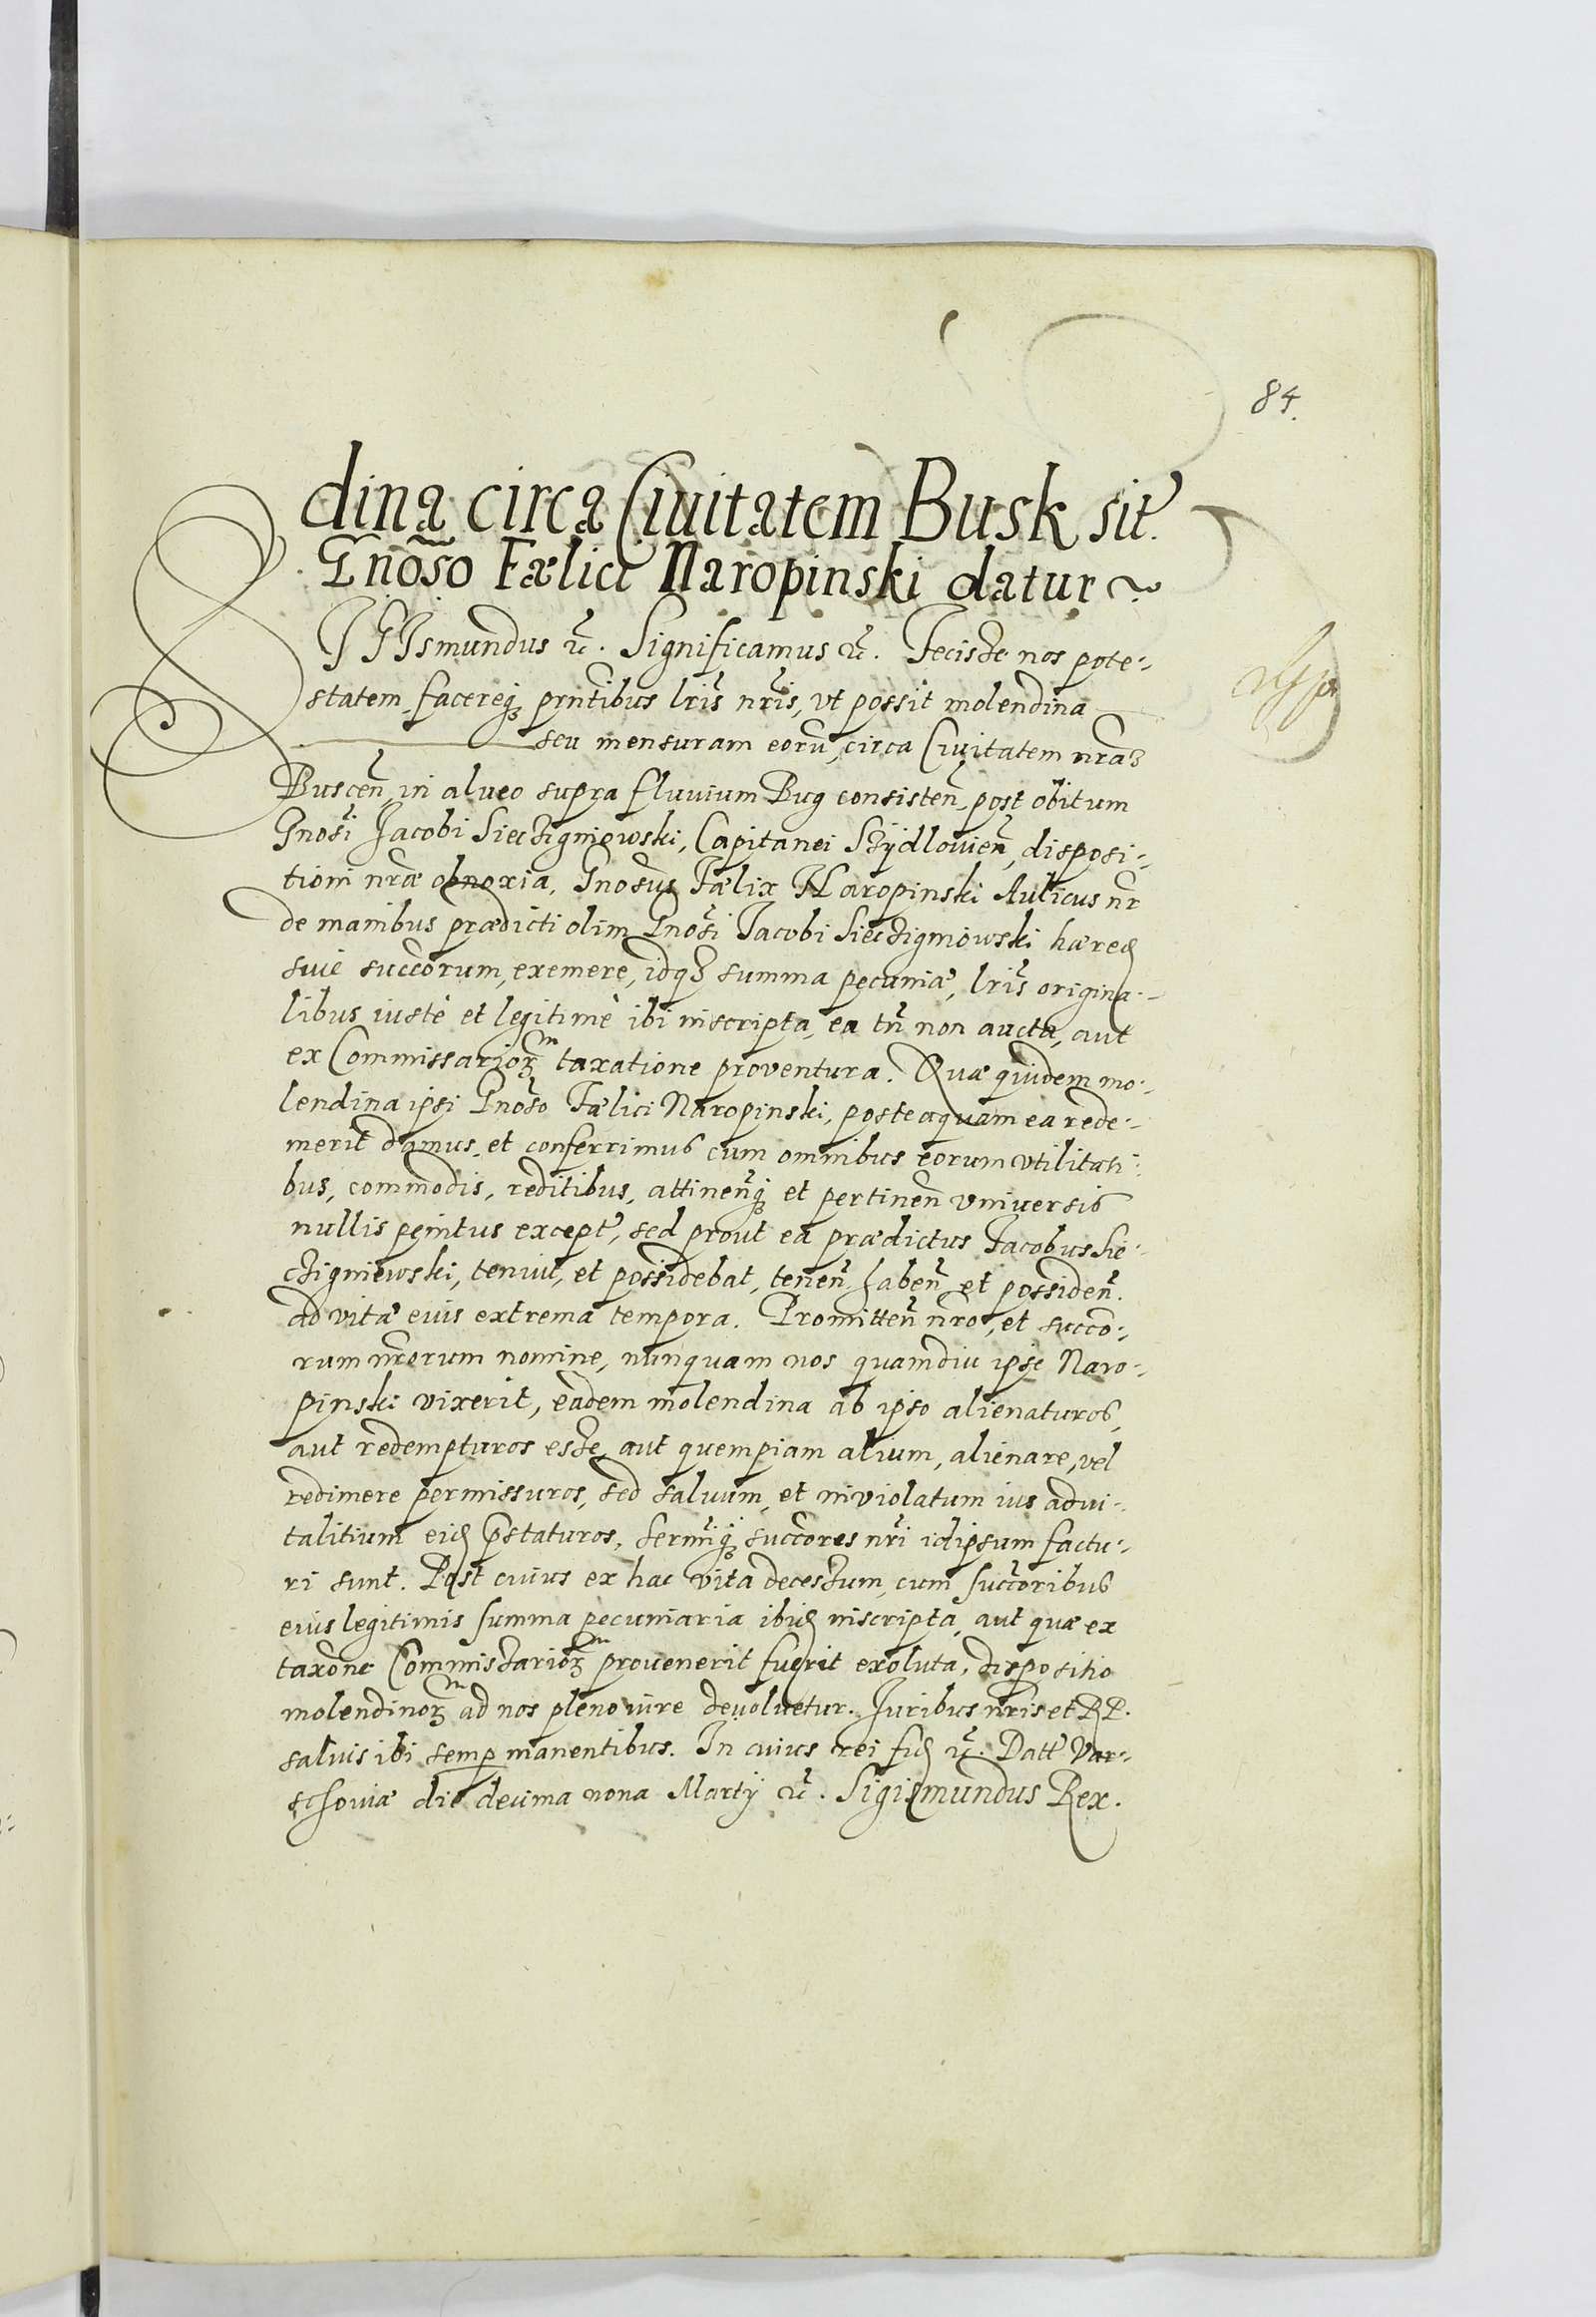 84.
dina circa Civitatem Busk sit.
Gnoso Fælici Naropinski datur
SIGIsmundus &c. Significamus &c. Fecisse nos pote-
statem facereq; prntibus lris nris, vt possit molendina
seu mensuram eoru, circa Civitatem nram
Buscen, in alueo supra fluuium Bug consisten, post obitum
Gnosi Jacobi Sieczigniowski, Capitanei Szÿdlouien, disposi-
tioni nræ obnoxia, Gnosus Fælix Naropinski Aulicus nr
de manibus prædicti olim Gnosi Jacobi Sieczigniowski hæred
sive succorum, exemere, idq3 summa pecuniæ, lris origina-
libus iustè et legitimè ibi inscripta, ea tn non aucta, aut
ex Commissarior taxatione proventura. Quæ quidem mo-
lendina ipsi Gnoso Fælici Naropinski, posteaquam ea rede-
merit damus et conferrimus cum omnibus eorum vtilitati-
bus, commodis, reditibus, attinenq; et pertinen vniuersis
nullis penitus except, sed prout ea prædictus Jacobus Sie-
czigniewski, tenuit, et possidebat, tenen haben et possiden.
ad vitæ eius extrema tempora. Promitten nro, et succo-
rum nrorum nomine, nunquam nos quamdiu ipse Naro-
pinski vixerit, eadem molendina ab ipso alienaturos,
aut redempturos esse, aut quempiam alium, alienare, vel
redimere permissuros, sed saluum, et inviolatum ius advi-
talitium eid pstaturos, sermiq; succores nri idipsum factu-
ri sunt. Post cuius ex hac vita decessum, cum succoribus
eius legitimis summa pecuniaria ibid inscripta, aut quæ ex
taxone Commissarior prouenerit fuerit exoluta, dispositio
molendinor ad nos pleno iure deuoluetur. Juribus nris et RP.
saluis ibi semp manentibus. In cuius rei fid &c. Datt Var-
schouiæ die decima nona Martÿ &c. Sigismundus Rex.